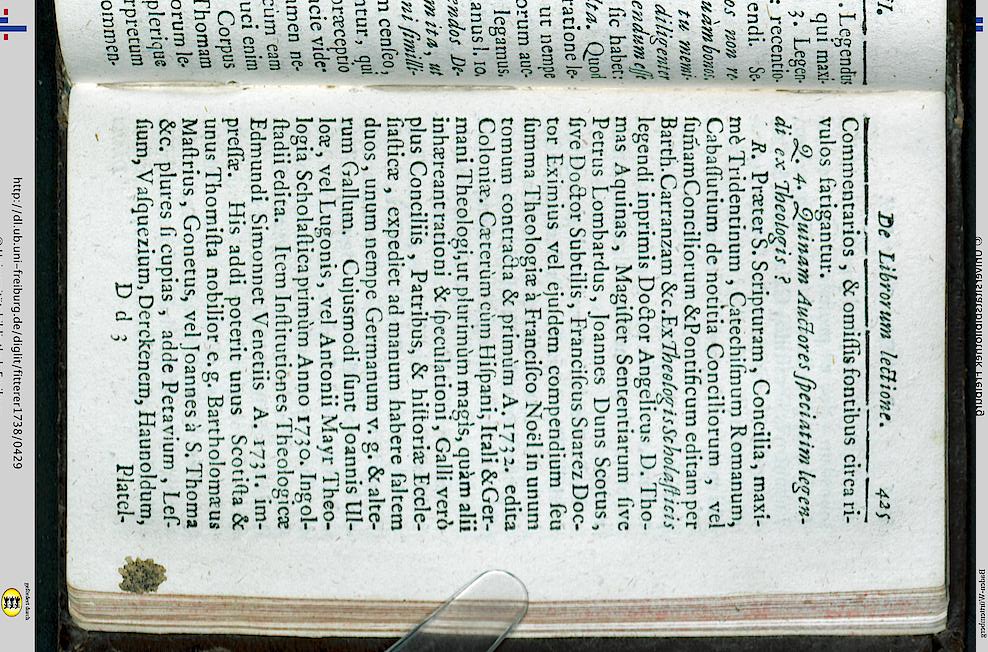 . Legendus
qui maxi-
3. Legen-
: recentio-
endi. Se
os non re
uàm bonos
tu memi-
diligenter
endum eſſ
ſic habet:
lta. Quod
ratione le-
ut nempe
orum auc-
legamus.
anus l. 10.
endos De-
mita, ut
ni ſimili-
m cenſeo,
ntur, qui
præceptio
ncie vide-
amen ne-
cum eam
uci enim
Corpus
Thomam
orum le-
plerique
rpretum
ommen-
De Librorum lectione. 425
Commentarios, & omiſſis fontibus circa ri-
vulos fatigantur.
Q. 4. Quinam Auctores ſpeciatim legen-
di ex Theologis?
R. Præter S. Scripturam, Concilia, maxi-
mè Tridentinum, Catechiſmum Romanum,
Cabaſſutium de notitia Conciliorum, vel
ſum̃am Conciliorum & Pontificum editam per
Barth. Carranzam &c. Ex Theologis Scholaſticis
legendi inprimis Doctor Angelicus D. Tho-
mas Aquinas, Magiſter Sententiarum ſive
Petrus Lombardus, Joannes Duns Scotus,
ſivè Doctor Subtilis, Franciſcus Suarez Doc-
tor Eximius vel ejuſdem compendium ſeu
ſumma Theologiæ à Franciſco Noël in unum
tomum contracta & primùm A. 1732. edita
Coloniæ. Cæterùm cum Hiſpani, Itali & Ger-
mani Theologi, ut plurimùm magis, quàm alii
inhæreant rationi & ſpeculationi, Galli verò
plus Conciliis, Patribus, & hiſtoriæ Eccle-
ſiaſticæ, expediet ad manum habere ſaltem
duos, unum nempe Germanum v. g. & alte-
rum Gallum. Cujusmodi ſunt Joannis Ul-
loæ, vel Lugonis, vel Antonii Mayr Theo-
logia Scholaſtica primùm Anno 1730. Ingol-
ſtadii edita. Item Inſtitutiones Theologicæ
Edmundi Simonnet Venetiis A. 1731. im-
preſſæ. His addi poterit unus Scotiſta &
unus Thomiſta nobilior e. g. Bartholomæus
Maſtrius, Gonetus, vel Joannes à S. Thoma
&c, plures ſi cupias, adde Petavium, Leſ-
ſium, Vaſquezium, Derckenem, Haunoldum,
D d 3 Platel-
http://dl.ub.uni-freiburg.de/diglit/fitterer1738/0429